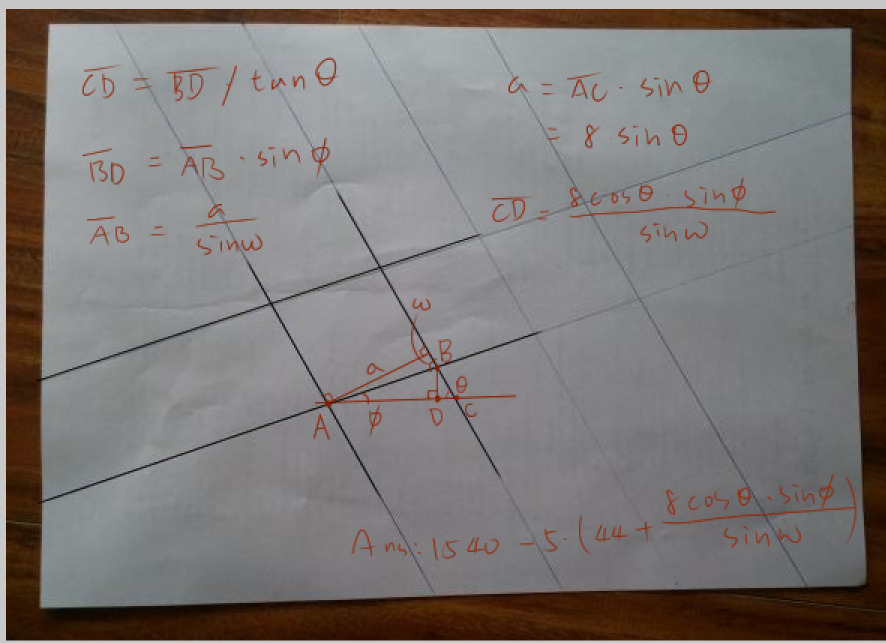 C̅D̅ = B̅D̅ / tan θ
B̅D̅ = A̅B̅ · sin ϕ
A̅B̅ = a / sin ω
a = A̅C̅ · sin θ
= 8 sin θ
C̅D̅ = 8 cos θ · sin ϕ / sin ω
ω
a
B
θ
A
ϕ
D
C
Ans: 1540 - 5 · (44 + 8 cos θ · sin ϕ / sin ω)